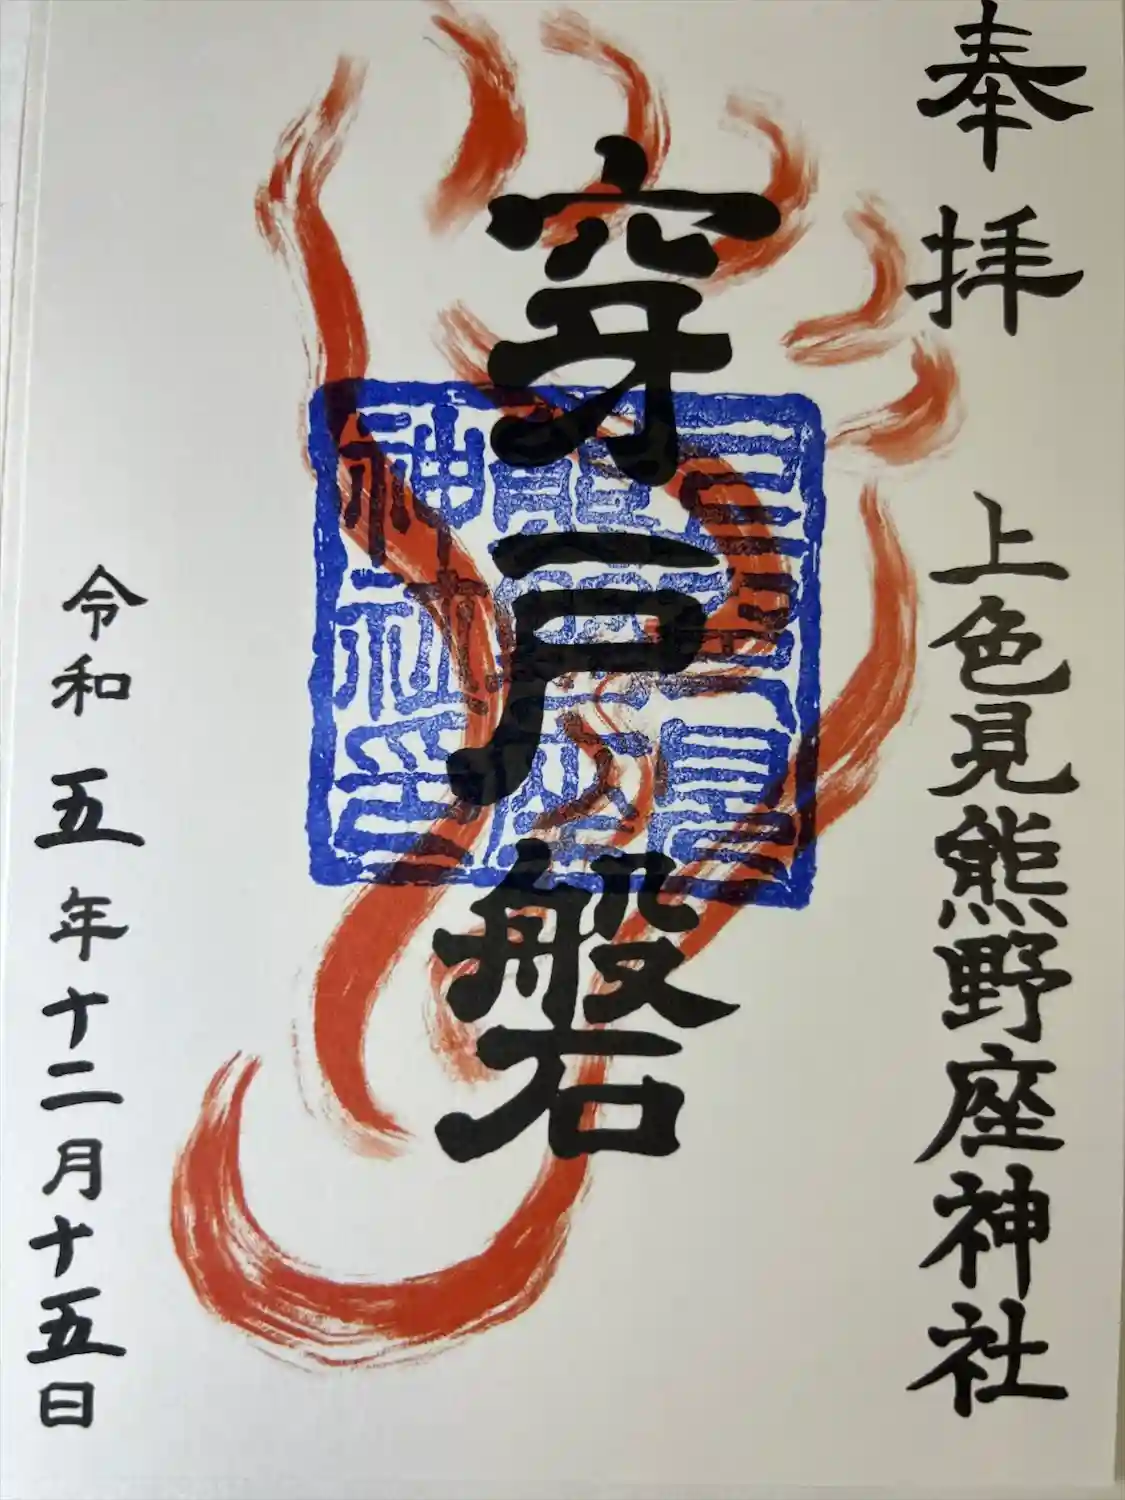 奉拝
上色見熊野座神社
穿戸磐
令和五年十二月十五日